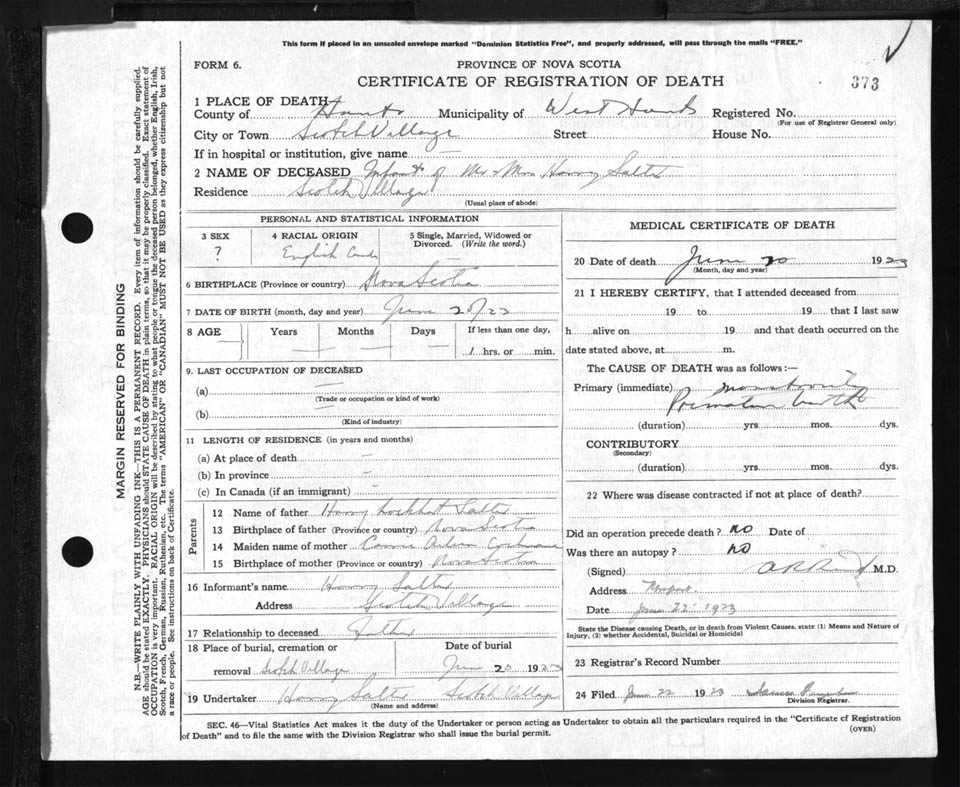 This form if placed in an unsealed envelope marked "Dominion Statistics Free", and properly addressed, will pass through the mails "FREE."
FORM 6.
PROVINCE OF NOVA SCOTIA
CERTIFICATE OF REGISTRATION OF DEATH
373
1 PLACE OF DEATH
County of Hants Municipality of West Hants Registered No.
(For use of Registrar General only)
City or Town Scotch Village Street House No.
If in hospital or institution, give name
2 NAME OF DECEASED Infant of Mr & Mrs Harry Salter
Residence Scotch Village
(Usual place of abode)
PERSONAL AND STATISTICAL INFORMATION
3 SEX
?
4 RACIAL ORIGIN
English
5 Single, Married, Widowed or Divorced. (Write the word.)
6 BIRTHPLACE (Province or country) Nova Scotia
7 DATE OF BIRTH (month, day and year) June 20/23
8 AGE Years Months Days If less than one day,
1 hrs. or min.
9. LAST OCCUPATION OF DECEASED
(a)
(Trade or occupation or kind of work)
(b)
(Kind of industry)
11 LENGTH OF RESIDENCE (in years and months)
(a) At place of death
(b) In province
(c) In Canada (if an immigrant)
Parents
12 Name of father Harry Lockhart Salter
13 Birthplace of father (Province or country) Nova Scotia
14 Maiden name of mother Cochrane
15 Birthplace of mother (Province or country) Nova Scotia
16 Informant's name Harry Salter
Address Scotch Village
17 Relationship to deceased Father
18 Place of burial, cremation or removal Scotch Village
Date of burial
June 20 1923
19 Undertaker Harry Salter Scotch Village
(Name and address)
MEDICAL CERTIFICATE OF DEATH
20 Date of death June 20 1923
(Month, day and year)
21 I HEREBY CERTIFY, that I attended deceased from
19 to 19 that I last saw
h alive on 19 and that death occurred on the
date stated above, at m.
The CAUSE OF DEATH was as follows:—
Primary (immediate) Monstrosity
Premature birth
(duration) yrs. mos. dys.
CONTRIBUTORY
(Secondary)
(duration) yrs. mos. dys.
22 Where was disease contracted if not at place of death?
Did an operation precede death? no Date of
Was there an autopsy? no
(Signed) M.D.
Address Newport
Date June 22 1923
State the Disease causing Death, or in death from Violent Causes, state (1) Means and Nature of Injury, (2) whether Accidental, Suicidal or Homicidal
23 Registrar's Record Number
24 Filed June 22 1923 James
Division Registrar.
SEC. 46—Vital Statistics Act makes it the duty of the Undertaker or person acting as Undertaker to obtain all the particulars required in the "Certificate of Registration
of Death" and to file the same with the Division Registrar who shall issue the burial permit.
(OVER)
MARGIN RESERVED FOR BINDING
N.B—WRITE PLAINLY WITH UNFADING INK—THIS IS A PERMANENT RECORD. Every item of information should be carefully supplied.
AGE should be stated EXACTLY. PHYSICIANS should STATE CAUSE OF DEATH in plain terms, so that it may be properly classified. Exact statement of
OCCUPATION is very important. RACIAL ORIGIN will be described by stating to what people or tongue the deceased person belonged, whether English, Irish,
Scotch, French, German, Russian, Ruthenian, etc. The terms "AMERICAN" OR "CANADIAN" MUST NOT BE USED as they express citizenship but not
a race or people. See instructions on back of Certificate.